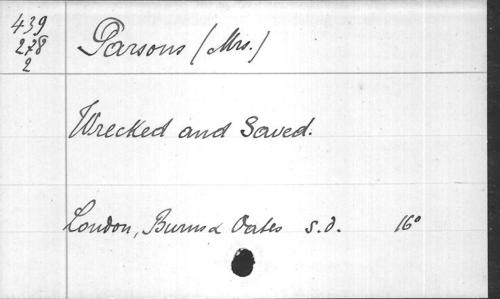 439
278
2
Parsons (Mrs.)
Wrecked and Saved.
London, Burns & Oates s.d. 16°